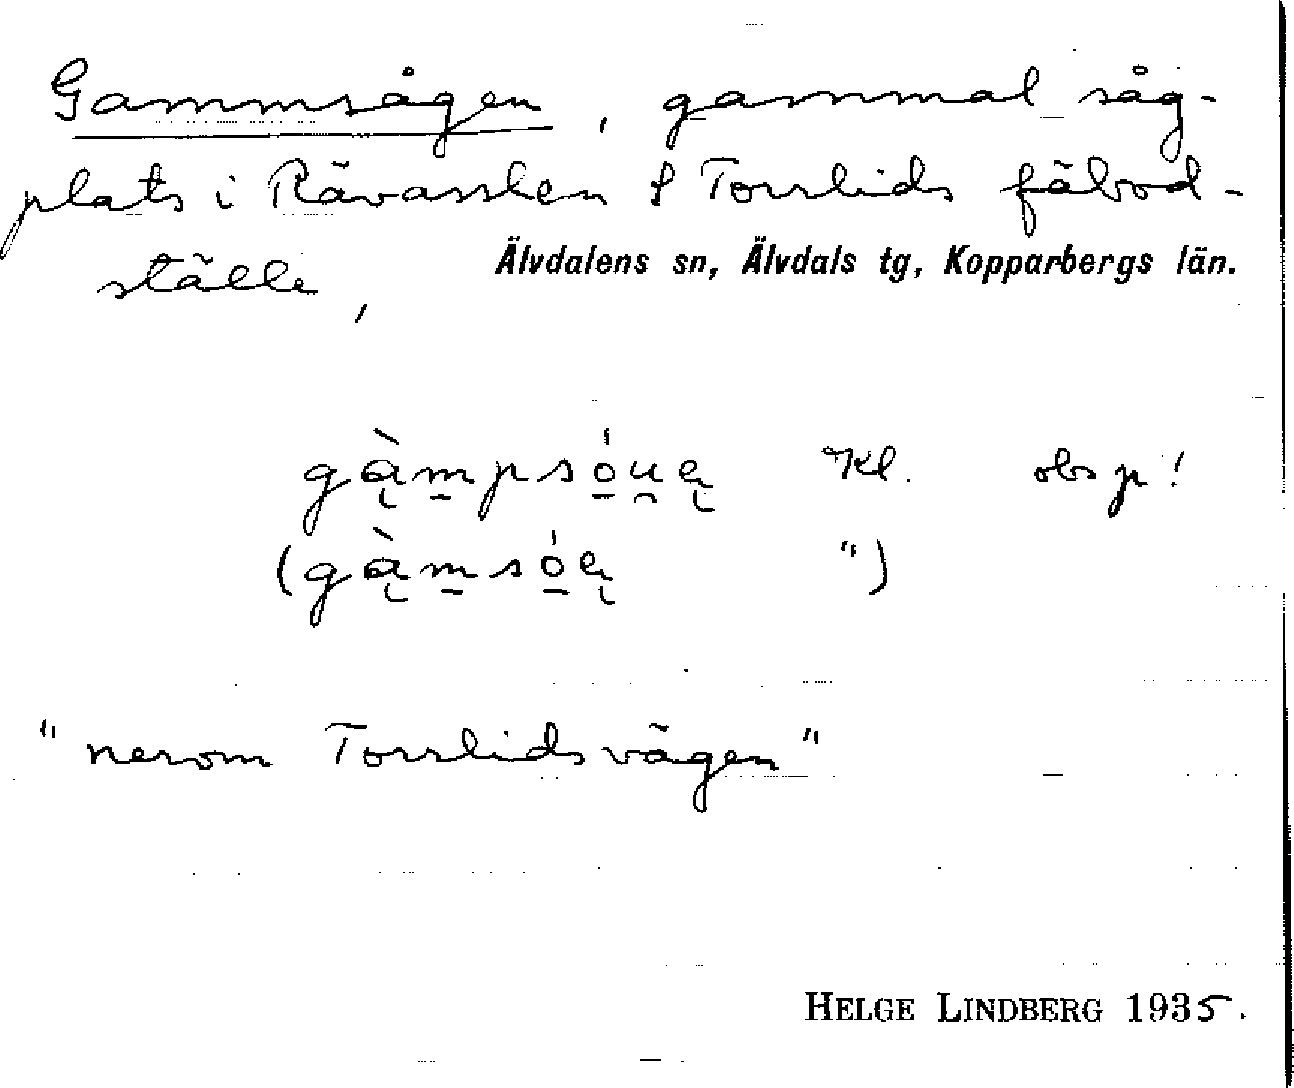 Gammsågen, gammal såg-
plats i Rävasslen S Torrlids fäbod-
ställe,
Älvdalens sn, Älvdals tg, Kopparbergs län.
gàmpsóuę Kl. obs p!
(gàmsóę ")
"nerom Torrlidsvägen"
HELGE LINDBERG 1935.